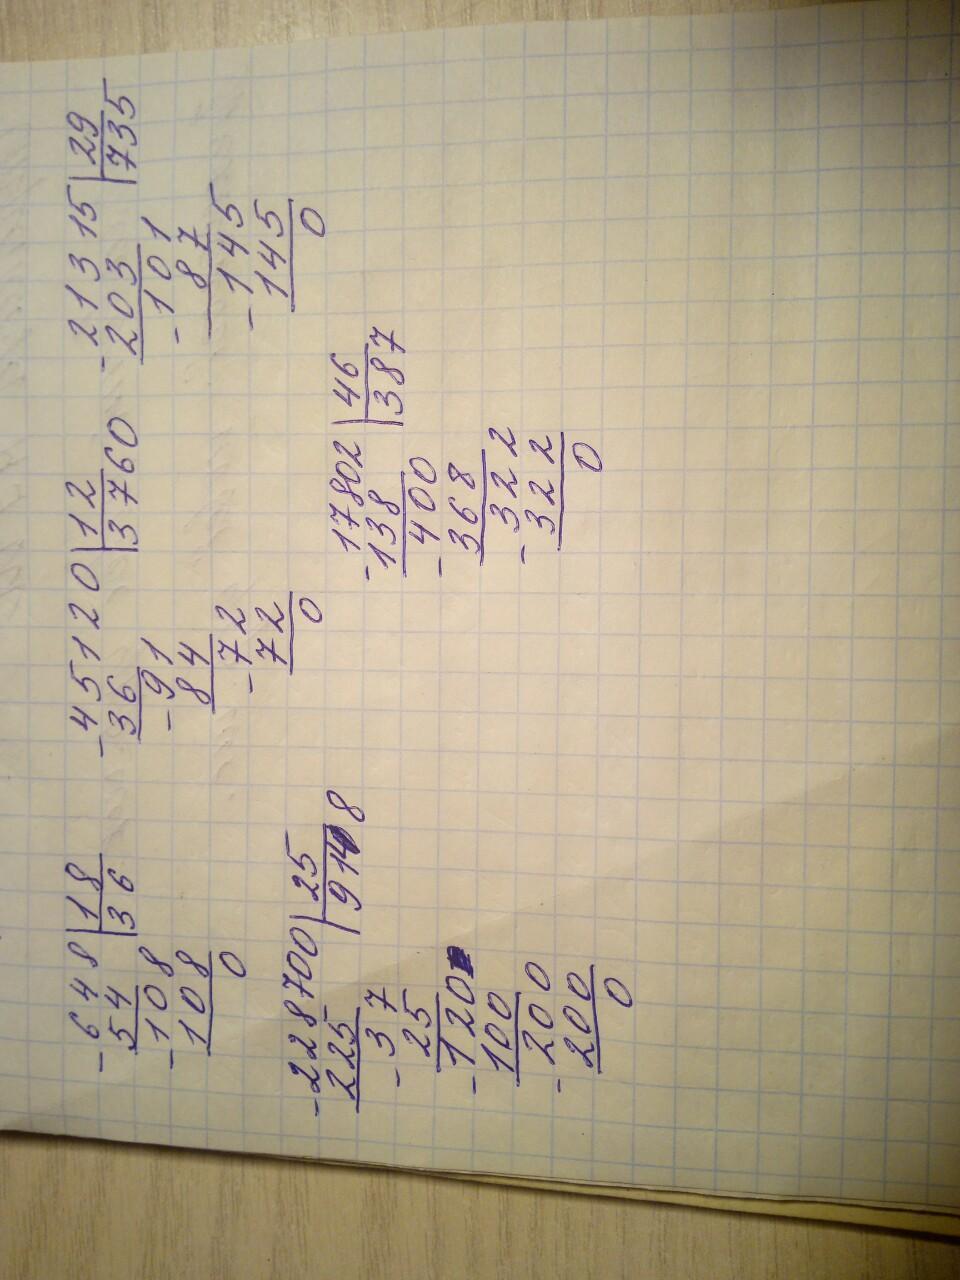 -648|18
54|36
-108
108
0
-45120|12
36|3760
-91
84
-72
72
0
-21315|29
203|735
-101
87
-145
145
0
-228700|25
225|9148
-37
25
-120
100
-200
200
0
-17802|46
138|387
-400
368
-322
322
0